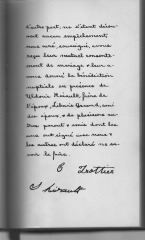 d'autre part, ne s'étant décou-
vert aucun empêchement;
nous curé, soussigné, avons
reçu leur mutuel consente-
ment de mariage & leur a-
vons donné la bénédiction
nuptiale en présence de
Hérault, frère de
l'époux,
de l'époux, & de plusieurs au-
tres parents & amis dont les
uns ont signé avec nous &
les autres ont déclaré ne sa-
voir le faire.
Trottier
Hérault